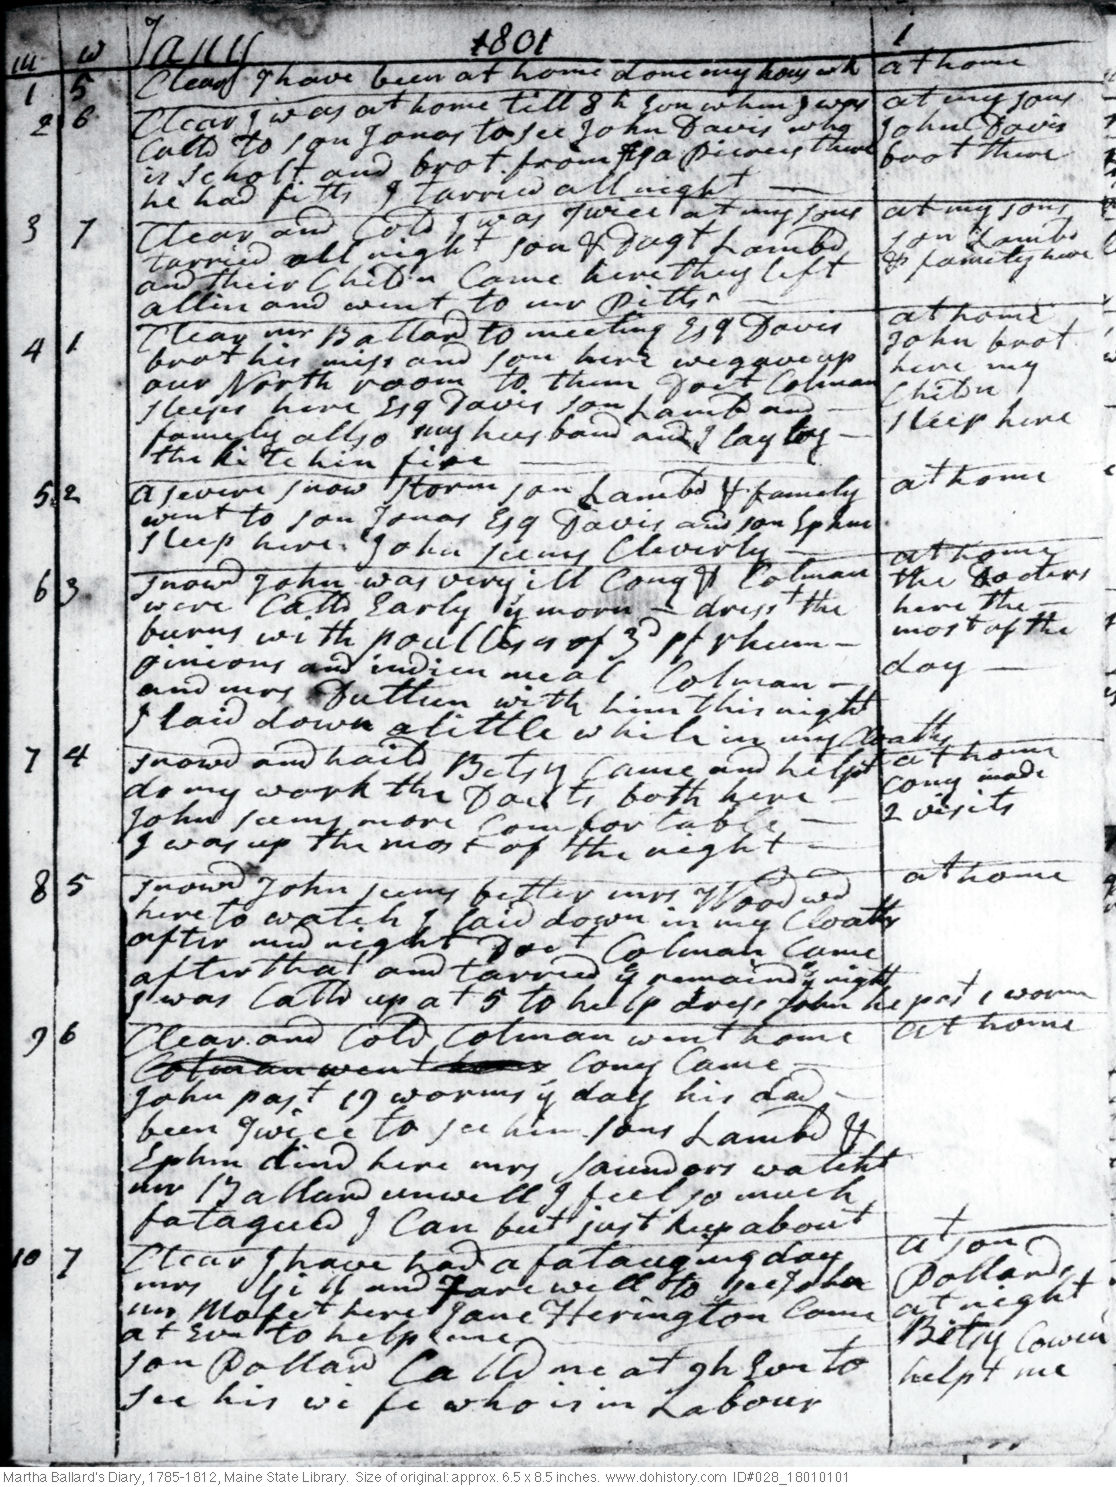 m w Jany 1801 1
1 5 Clear I have been at home done my hous wk at home
2 6 Clear I was at home till 8 h Evn when I was at my sons
Calld to son Jonas to see John Davis who John Davis
is scholt and brot from Esq Pierces there brot there
he had fitts I tarried all night —
3 7 Clear and Cold I was twice at my sons at my sons
tarried all night son & Dagt Lambd son Lambd
and their Childn Came here they left & famely here
allin and went to mr Pitts
4 1 Clear mr Ballard to meeting Esq Davis at home
brot his miss and son here we gave up John brot
our North room to them Doct Colman here my
sleeps here Esq Davis son Lambd and — Childn
famely allso my husband and I lay by — sleep here
the kitchin fire —
5 2 a severe snow storm son Lambd & famely at home
went to son Jonas Esq Davis and son Ephm
sleep here. John seems Cleverly —
6 3 snowd John was very ill Cony & Colman at home
were Calld Early ys morn — drest the the Docters
burns with poultises of 3d pt rhum — here the —
oinions and indien meal Colman — most of the
and mrs Dutten with him this night day —
I laid down a little while in my Cloaths
7 4 snowd and haild Betsy Came and helpt at home
do my work the Doct s both here — Cony made
John seems more Comfortable — 2 visits
I was up the most of the night —
8 5 snowd John seems better mrs Woodwd at home
here to watch I laid down in my Cloaths
after midnight Doct Colman Came
after that and tarried ye remaind of ye night
I was Calld up at 5 to help dress John he past 1 worm
9 6 Clear and Cold Colman went home at home
Colman went home Cony Came —
John past 19 worms ys day his dad —
been twice to see him. sons Lambd &
Ephm dind here mrs Saunders watcht
mr Ballard unwell I feel so much
fatagued I Can but just keep about
10 7 Clear I have had a fataugung day at son
mrs Gill and Farewell to see John Pollards
mr Mofet here Jane Herington Came at night
at Evn to help me Betsy Cowen
son Pollard Calld me at 9h Evn to helpt me
see his wife who is in Labour
Martha Ballard's Diary, 1785-1812, Maine State Library. Size of original: approx. 6.5 x 8.5 inches. www.dohistory.com ID#028_18010101